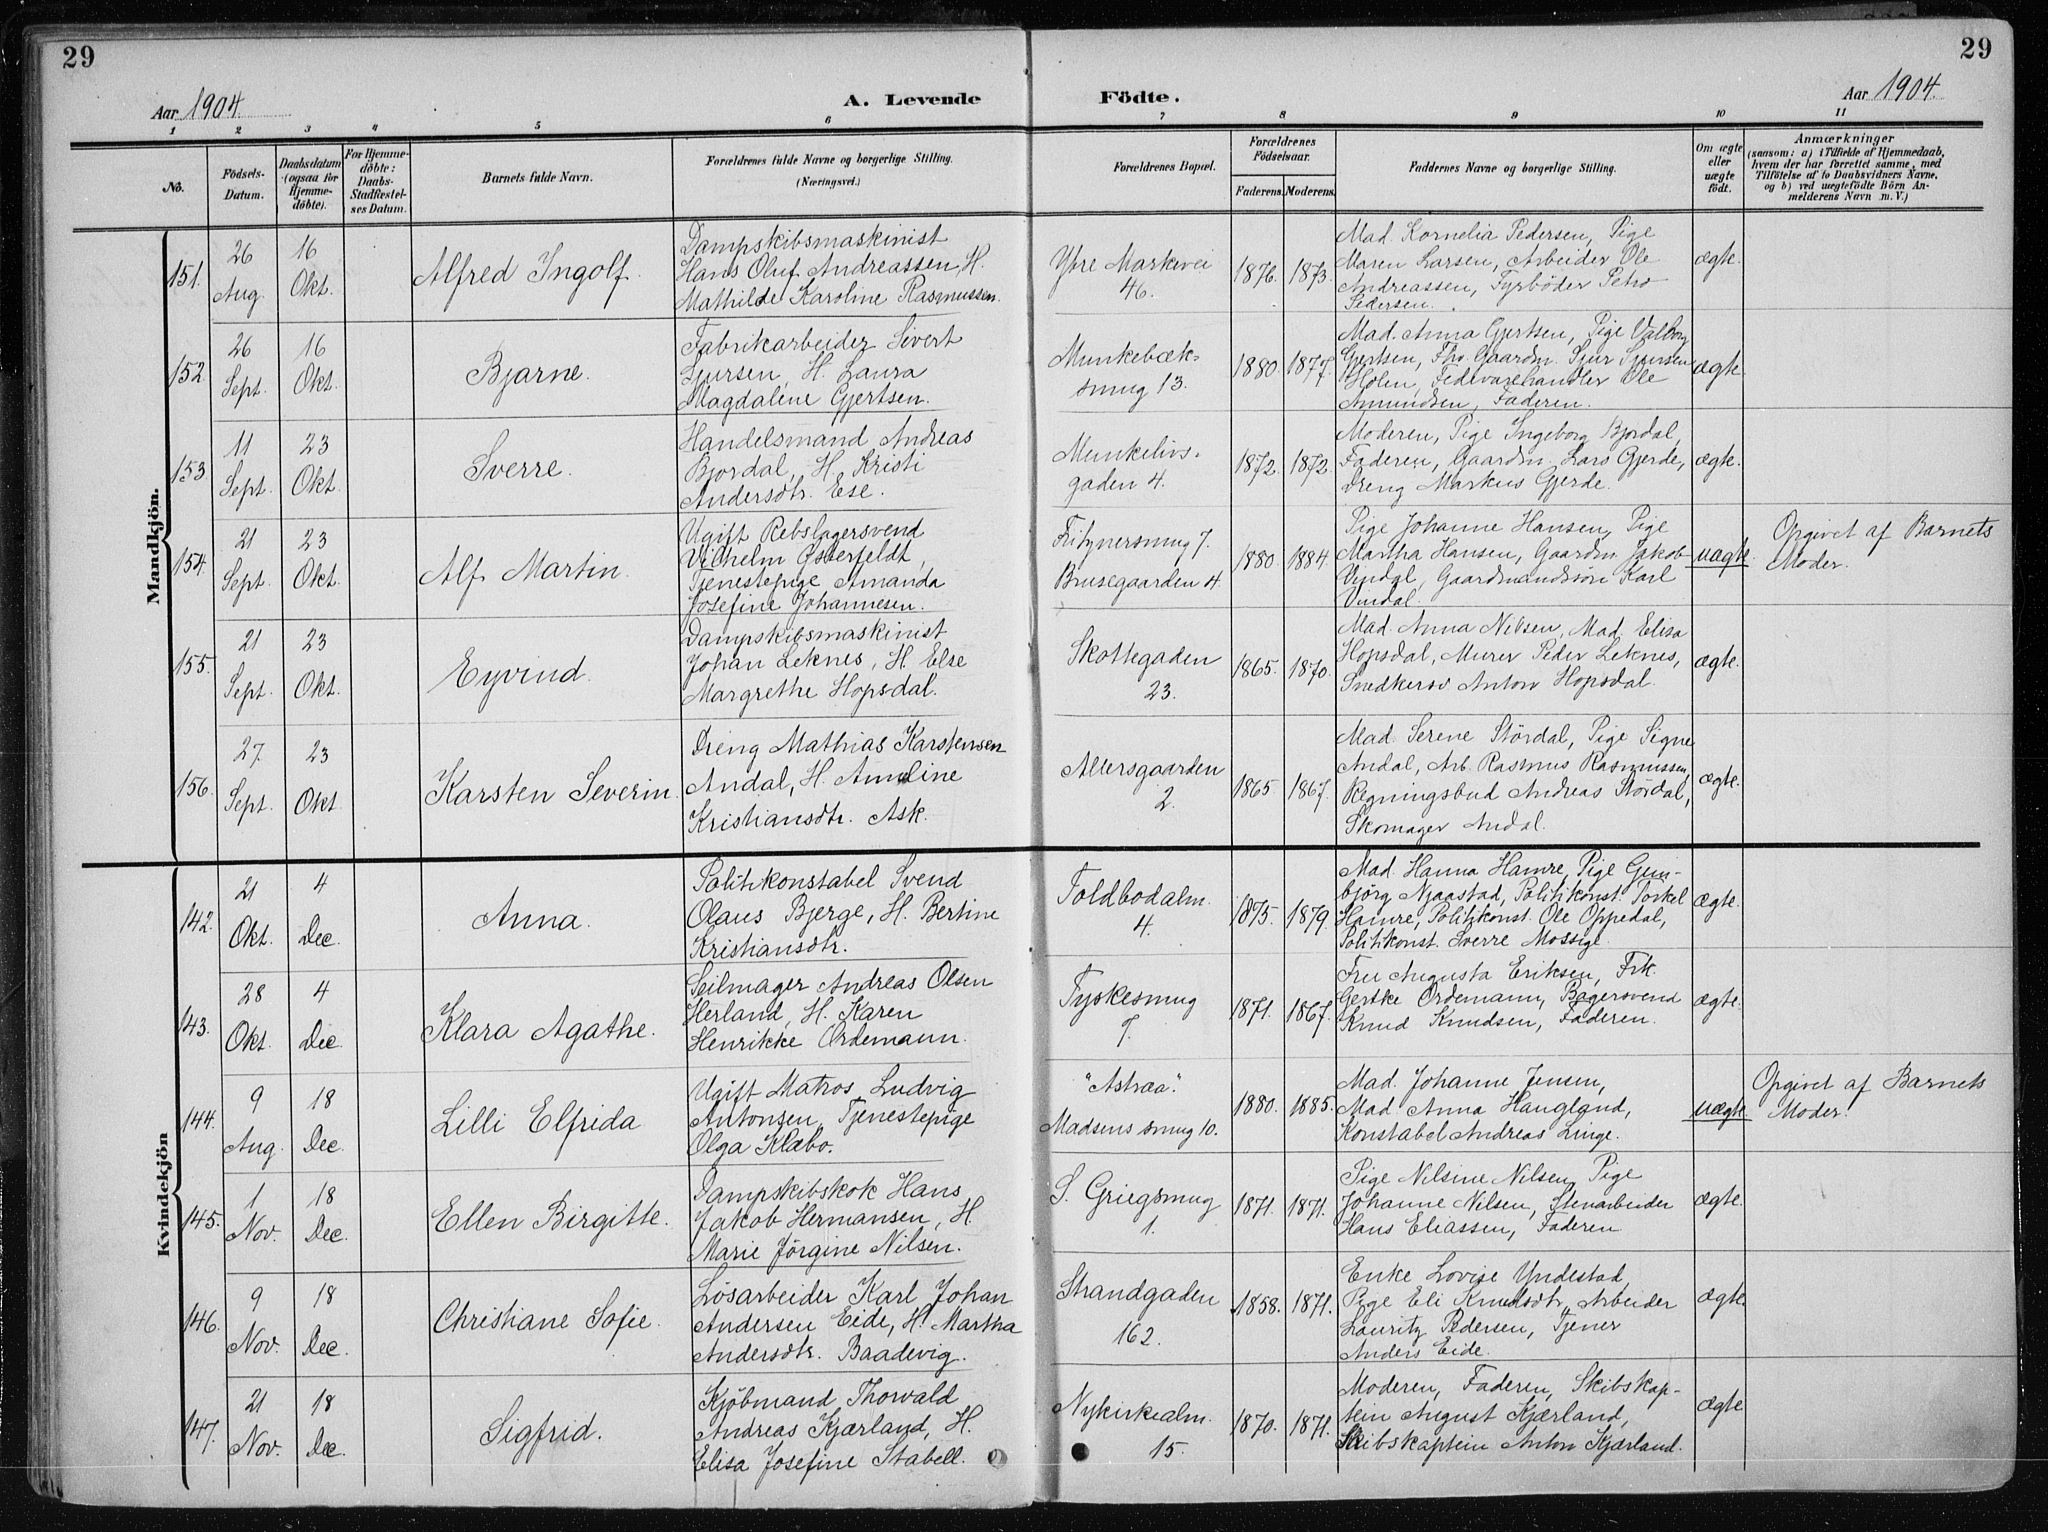 29
29
Aar 1904.
A. Levende Födte.
Aar 1904.
1 2 3 4 5 6 7 8 9 10 11
No.
Födsels-
Datum.
Daabsdatum
(ogsaa for
Hjemme-
döbte).
For Hjemme-
döbte:
Daabs-
Stadfæstel-
ses Datum.
Barnets fulde Navn.
Forældrenes fulde Navne og borgerlige Stilling.
(Næringsvei.)
Forældrenes Bopæl.
Forældrenes
Födselsaar.
Faderens. Moderens.
Faddernes Navne og borgerlige Stilling.
Om ægte
eller
uægte
födt.
Anmærkninger
(saasom: a) i Tilfælde af Hjemmedaab,
hvem der har forrettet samme, med
Tilföielse af to Daabsvidners Navne,
og b) ved uægtefödte Börn An-
melderens Navn m. V.)
Mandkjön.
151.
26
Aug.
16
Okt.
Alfred Ingolf.
Dampskibsmaskinist
Hans Oluf Andreassen, H.
Mathilde Karoline Rasmussen.
Ytre Markevei
46.
1876.
1873.
Mad. Kornelia Pedersen, Pige
Maren Larsen, Arbeider Ole
Andreassen, Fyrböder Petro
Pedersen.
ægte.
152.
26
Sept.
16
Okt.
Bjarne.
Fabrikarbeider Sivert
Sjursen, H. Laura
Magdalene Gjertsen.
Munkebæk-
smug 13.
1880.
1877.
Mad. Anna Gjertsen, Pige Valborg
Gjertsen, Fhv. Gaardm. Sjur
Holen, Fedevarehandler Ole
Amundsen, Faderen.
ægte.
153.
11
Sept.
23
Okt.
Sverre.
Handelsmand Andreas
Bjordal, H. Kristi
Andersdtr. Ese.
Munkelivs-
gaden 4.
1872.
1872.
Moderen, Pige Ingeborg Bjordal,
Faderen, Gaardm. Lars Gjerde,
Dreng Markus Gjerde.
ægte.
154.
21
Sept.
23
Okt.
Alf Martin.
Ugift Rebslagersvend
Vilhelm Østerfeldt,
Tjenestepige Amanda
Josefine Johannesen.
Fritznersmug 7.
Brusegaarden 4.
1880.
1884.
Pige Johanne Hansen, Pige
Martha Hansen, Gaardm. Jakob
Vindal, Gaardmandssön Karl
Vindal.
uægte.
Opgivet af Barnets
Moder.
155.
21
Sept.
23
Okt.
Eyvind.
Dampskibsmaskinist
Johan Leknes, H. Else
Margrethe Hopsdal.
Skottegaden
23.
1865.
1870.
Mad. Anna Nilsen, Mad. Elisa
Hopsdal, Murer Peder Leknes,
Snedkersv Anton Hopsdal.
ægte.
156.
27.
Sept.
23
Okt.
Karsten Severin.
Dreng Mathias Karstensen
Andal, H. Anneline
Kristiansdtr. Ask.
Allersgaarden
2.
1865
1867.
Mad. Serene Stördal, Pige Signe
Andal, Arb. Rasmus Rasmussen,
Regningsbud Andreas Stördal,
Skomager Andal.
ægte.
Kvindekjön
142.
21
Okt.
4
Dec.
Anna.
Politikonstabel Svend
Olaus Bjerge, H. Bertine
Kristiansdtr.
Toldbodalm.
4.
1875.
1879.
Mad. Hanna Hamre, Pige Gun-
björg Njaastad, Politikonst. Torkel
Hamre, Politikonst. Ole Oppedal,
Politikonst. Sverre Mossige.
ægte.
143.
28
Okt.
4
Dec.
Klara Agathe.
Seilmager Andreas Olsen
Herland, H. Karen
Henrikke Ordemann.
Tyskesmug
7.
1871.
1867.
Fru Augusta Eriksen, Frk.
Gertke Ordemann, Bagersvend
Knud Knudsen, Faderen.
ægte.
144.
9
Aug.
18
Dec.
Lilli Elfrida
Ugift Matros Ludvig
Antonsen, Tjenestepige
Olga Klæbo.
"Astræa".
Madsens smug 10.
1880.
1885.
Mad. Johanne Jensen,
Mad. Anna Haugland,
Konstabel Andreas Linge.
uægte
Opgivet af Barnets
Moder.
145.
1
Nov.
18
Dec.
Ellen Birgitte.
Dampskibskok Hans
Jakob Hermansen, H.
Marie Jörgine Nilsen.
S. Griegsmug
1.
1871.
1871.
Pige Nilsine Nilsen, Pige
Johanne Nilsen, Stenarbeider
Hans Eliassen, Faderen.
ægte.
146.
9
Nov.
18
Dec.
Christiane Sofie.
Lösarbeider Karl Johan
Andersen Eide, H. Martha
Andersdtr. Baadevig.
Strandgaden
162.
1858.
1871.
Enke Lovise Yndestad,
Pige Eli Knudsdtr., Arbeider
Lauritz Pedersen, Tjener
Anders Eide.
ægte.
147.
21
Nov.
18
Dec.
Sigfrid.
Kjöbmand Thorvald
Andreas Kjærland, H.
Elisa Josefine Stabell.
Nykirkealm.
15.
1870.
1871.
Moderen, Faderen, Skibskap-
tein August Kjærland,
Skibskaptein Anton Kjærland.
ægte